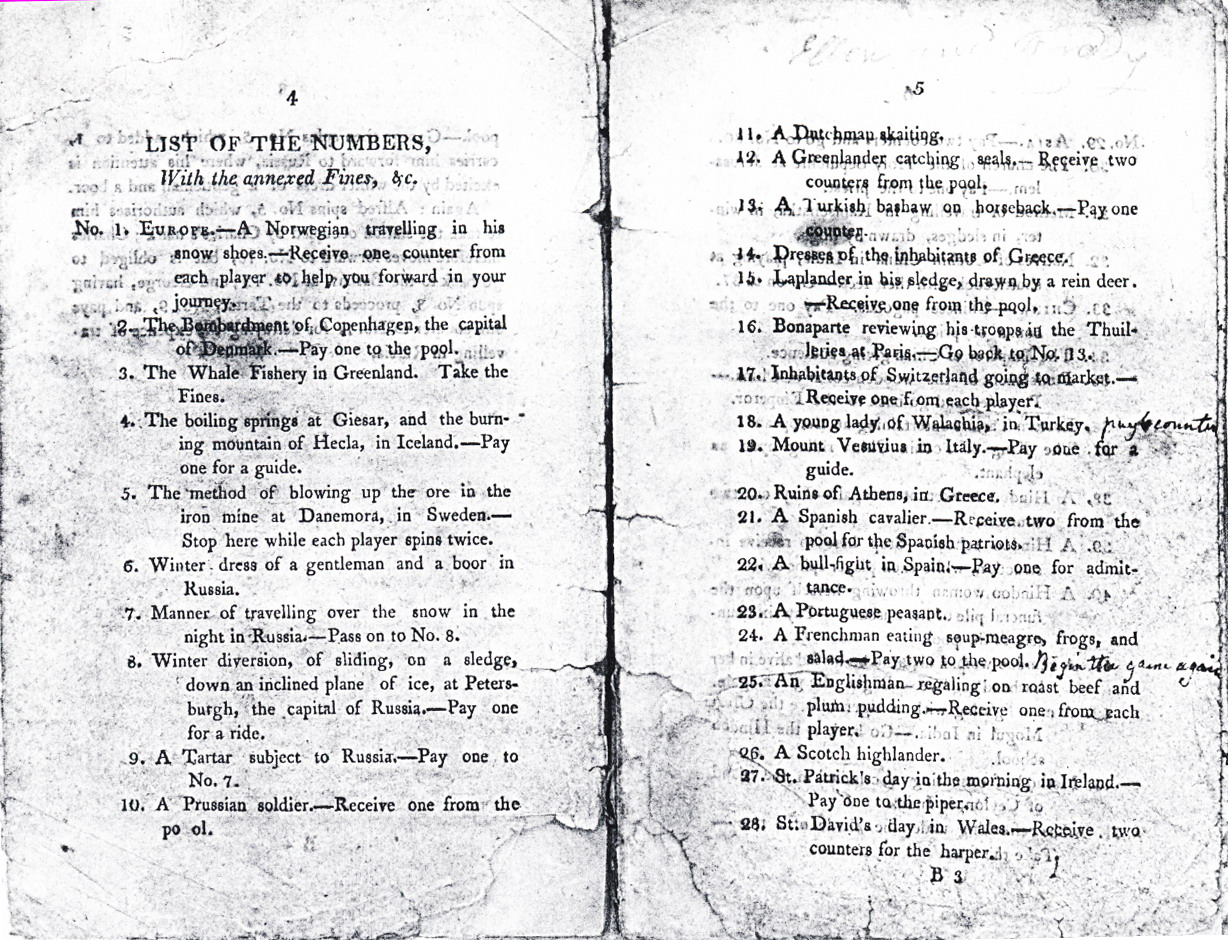 4
LIST OF THE NUMBERS,
With the annexed Fines, &c.
No. 1. EUROPE.—A Norwegian travelling in his
snow shoes.—Receive one counter from
each player to help you forward in your
journey.
2. The Bombardment of Copenhagen, the capital
of Denmark.—Pay one to the pool.
3. The Whale Fishery in Greenland. Take the
Fines.
4. The boiling springs at Giesar, and the burn-
ing mountain of Hecla, in Iceland.—Pay
one for a guide.
5. The method of blowing up the ore in the
iron mine at Danemora, in Sweden.—
Stop here while each player spins twice.
6. Winter dress of a gentleman and a boor in
Russia.
7. Manner of travelling over the snow in the
night in Russia.—Pass on to No. 8.
8. Winter diversion, of sliding, on a sledge,
down an inclined plane of ice, at Peters-
burgh, the capital of Russia.—Pay one
for a ride.
9. A Tartar subject to Russia.—Pay one to
No. 7.
10. A Prussian soldier.—Receive one from the
po ol.
Ellen
5
11. A Dutchman skaiting.
12. A Greenlander catching seals.—Receive two
counters from the pool.
13. A Turkish bashaw on horseback.—Pay one
counter.
14. Dresses of the inhabitants of Greece.
15. Laplander in his sledge, drawn by a rein deer.
—Receive one from the pool.
16. Bonaparte reviewing his troops in the Thuil-
leries at Paris.—Go back to No. 13.
17. Inhabitants of Switzerland going to market.—
Receive one from each player.
18. A young lady of Walachia, in Turkey. pay counter
19. Mount Vesuvius in Italy.—Pay one for a
guide.
20. Ruins of Athens, in Greece.
21. A Spanish cavalier.—Receive two from the
pool for the Spanish patriots.
22. A bull-fight in Spain.—Pay one for admit-
tance.
23. A Portuguese peasant.
24. A Frenchman eating soup-meagre, frogs, and
salad.—Pay two to the pool. Begin the game again
25. An Englishman regaling on roast beef and
plum pudding.—Receive one from each
player.
26. A Scotch highlander.
27. St. Patrick's day in the morning in Ireland.—
Pay one to the piper.
28. St. David's day in Wales.—Receive two
counters for the harper.
B 3